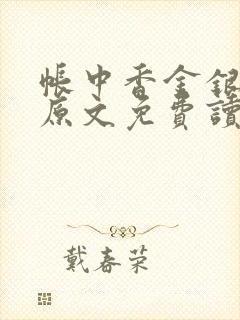 帳中香金銀
原文免費讀
戴春荣